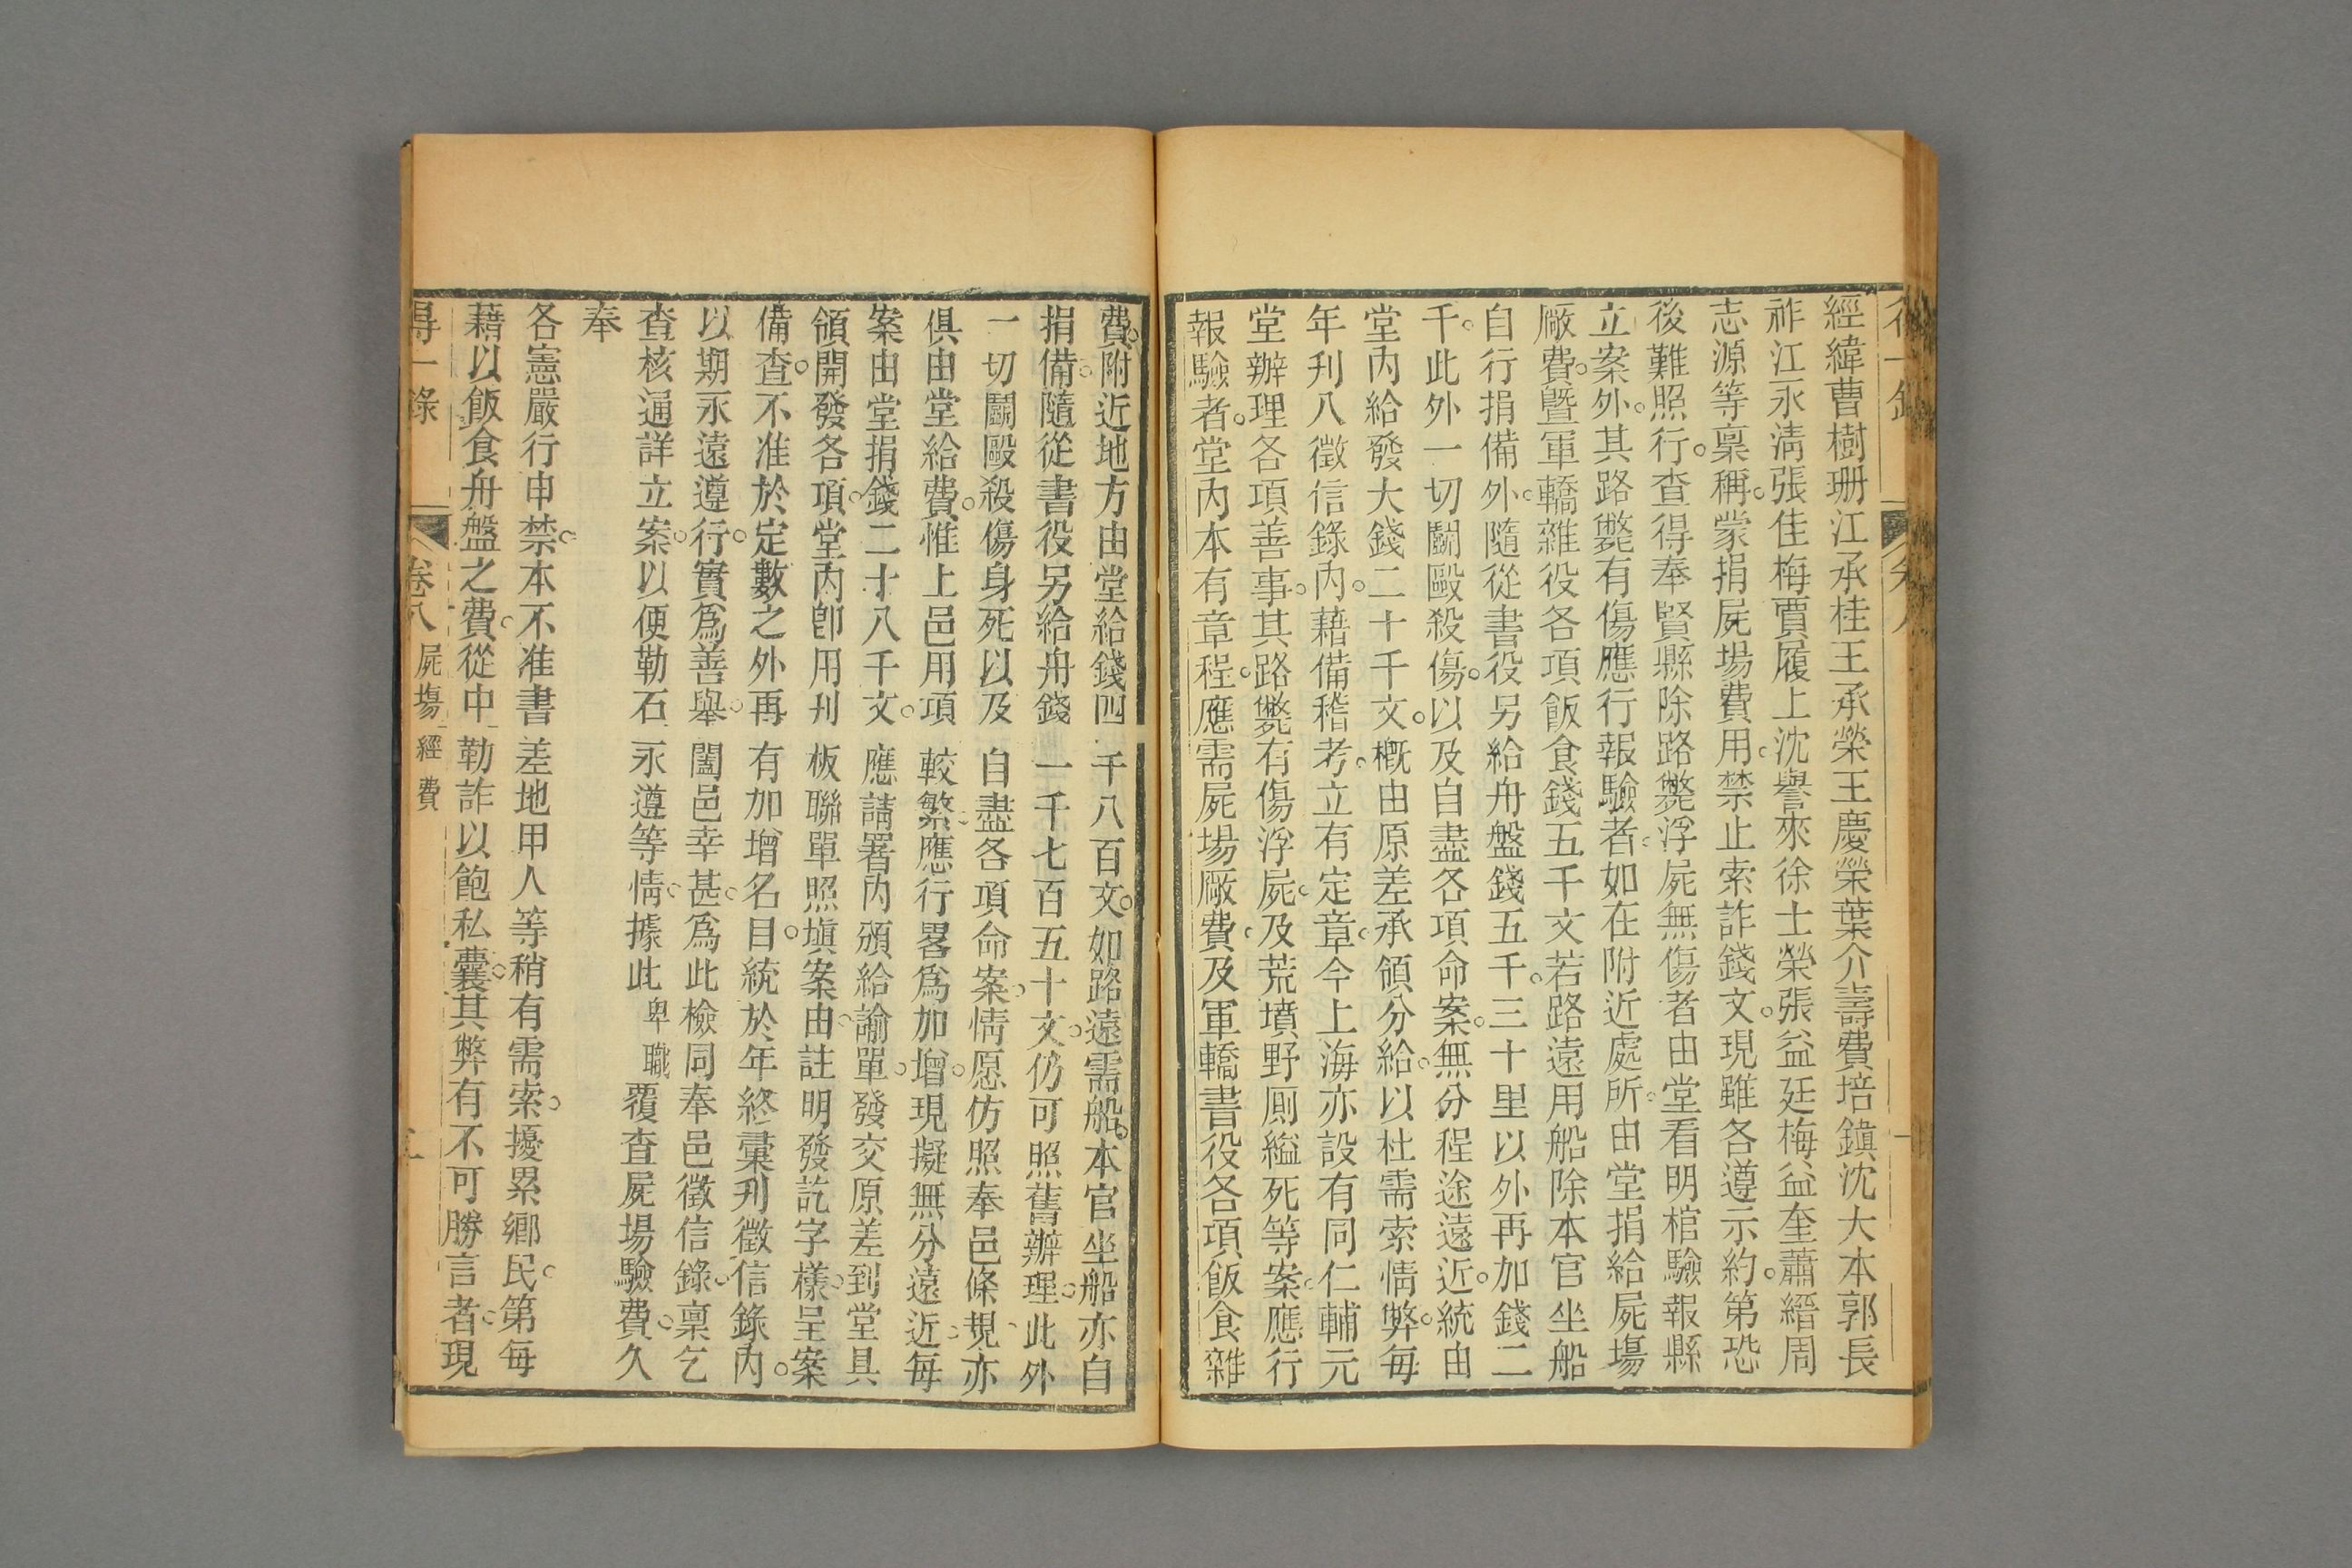 經緯曹樹珊江承桂王承榮王慶榮葉介壽費培鎮沈大本郭長
祚江永淸張佳梅賈履上沈譽來徐士榮張益廷梅益奎蕭縉周
志源等稟稱。蒙捐屍場費用。禁止索詐錢文。現雖各遵示約。第恐
後難照行。查得奉賢縣除路斃浮屍無傷者由堂看明棺驗報縣
立案外。其路斃有傷應行報驗者。如在附近處所。由堂捐給屍場
厰費。曁軍轎雜役各項飯食錢五千文若路遠用船除本官坐船
自行捐備外。隨從書役另給舟盤錢五千。三十里以外再加錢二
千。此外一切鬬毆殺傷。以及自盡各項命案。無分程途遠近。統由
堂內給發大錢二十千文。槪由原差承領分給。以杜需索情弊。每
年刋入徵信錄內。藉備稽考。立有定章。今上海亦設有同仁輔元
堂辦理各項善事。其路斃有傷浮屍。及荒墳野厠縊死等案。應行
報驗者。堂內本有章程。應需屍場厰費。及軍轎書役各項飯食雜
費。附近地方由堂給錢四千八百文。如路遠需船。本官坐船亦自
捐備。隨從書役另給舟錢一千七百五十文。仍可照舊辦理。此外
一切鬬毆殺傷身死以及自盡各項命案。情愿仿照奉邑條規。亦
俱由堂給費。惟上邑用項較繁。應行畧爲加增。現擬無分遠近。每
案由堂捐錢二十八千文。應請署內頒給諭單。發交原差到堂具
領開發各項。堂內卽用刋板聯單照塡案由。註明發訖字樣。呈案
備查。不准於定數之外再有加增名目。統於年終彙刋徵信錄內。
以期永遠遵行。實爲善舉。闔邑幸甚。爲此檢同奉邑徵信錄。稟乞
查核通詳立案。以便勒石永遵等情。據此卑職覆查屍場驗費。久
奉
各憲嚴行申禁。本不准書差地甲人等稍有需索。擾累鄉民。第每
藉以飯食舟盤之費。從中勒詐以飽私囊。其弊有不可勝言者。現
得一錄 卷八 屍塲經費